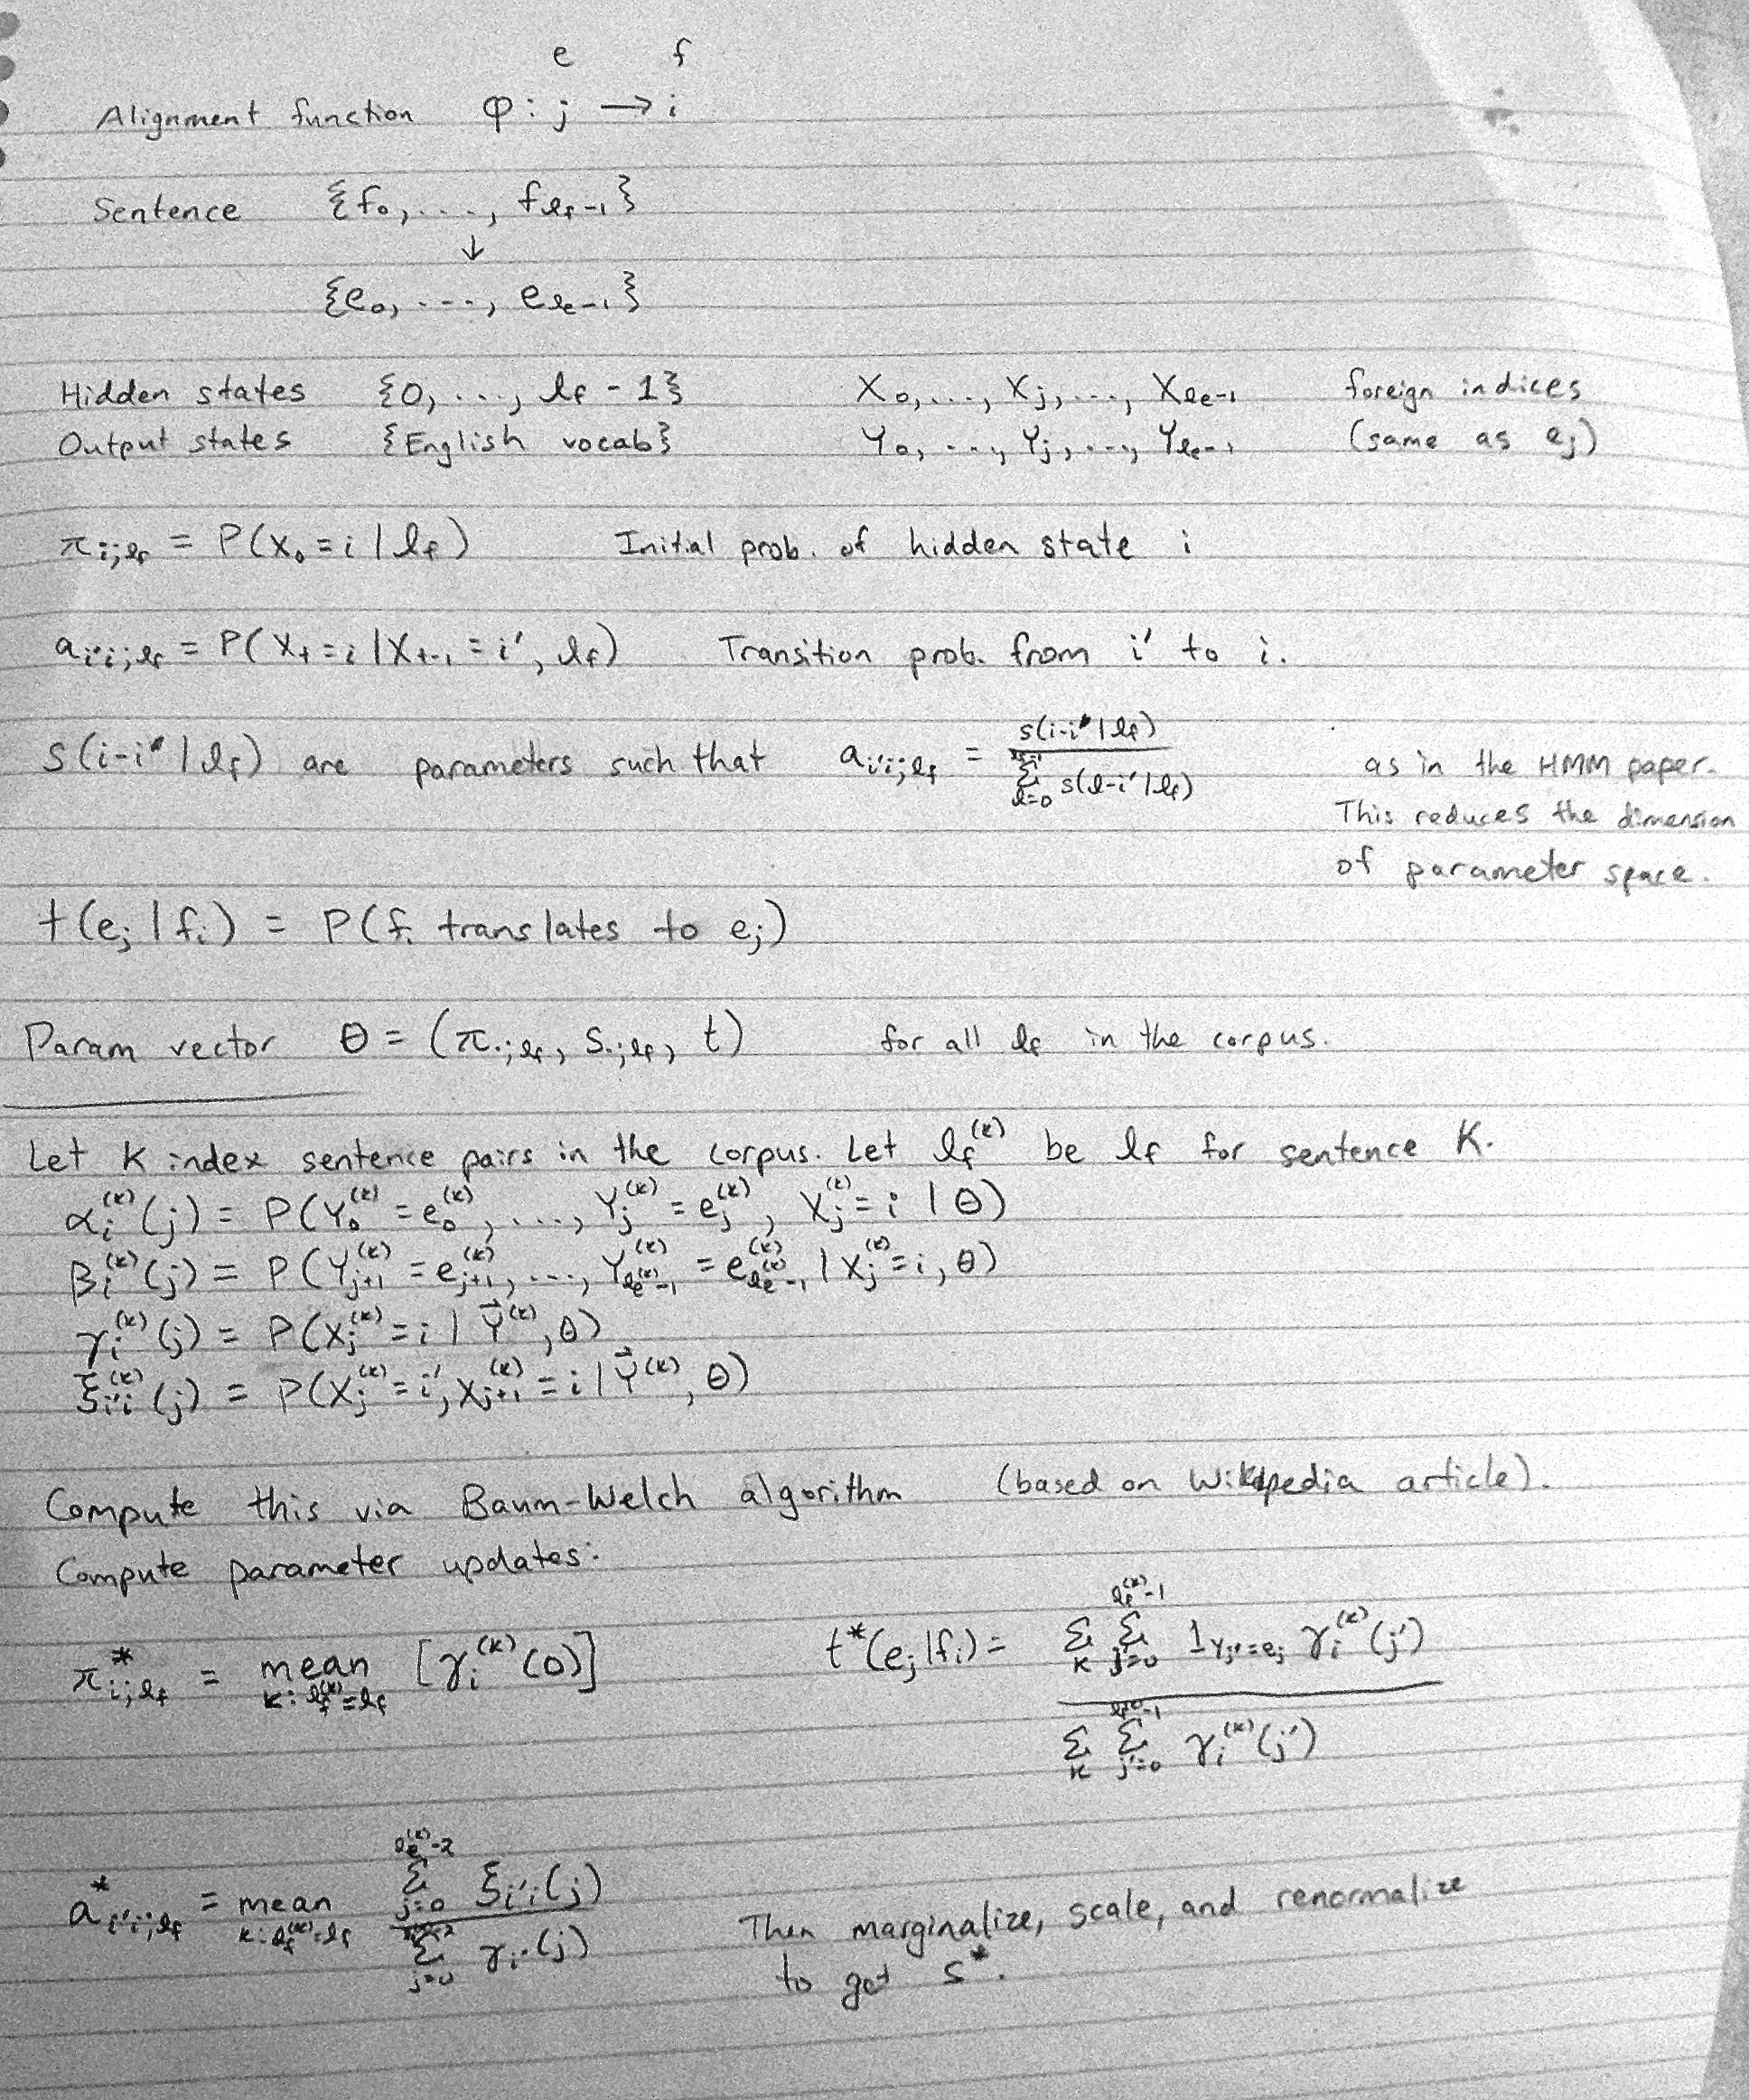 e f
Alignment function φ : j → i
Sentence {f₀, ...., f_{l_f-1}}
↓
{e₀, ...., e_{l_e-1}}
Hidden states {0, ..., l_f - 1} X₀, ..., X_j, ..., X_{l_e-1} foreign indices
Output states {English vocab} Y₀, ..., Y_j, ..., Y_{l_e-1} (same as e_j)
π_{i;l_f} = P(X₀ = i | l_f) Initial prob. of hidden state i
a_{i'i;l_f} = P(X_t = i | X_{t-1} = i', l_f) Transition prob. from i' to i.
s(i-i' | l_f) are parameters such that a_{i'i;l_f} = s(i-i' | l_f) / Σ_{l=0} s(l-i' | l_f) as in the HMM paper.
This reduces the dimension
of parameter space.
t(e_j | f_i) = P(f_i translates to e_j)
Param vector θ = (π_{·;l_f}, s_{·;l_f}, t) for all l_f in the corpus.
Let k index sentence pairs in the corpus. Let l_f^{(k)} be l_f for sentence k.
α_i^{(k)}(j) = P(Y₀^{(k)} = e₀^{(k)}, ..., Y_j^{(k)} = e_j^{(k)}, X_j^{(k)} = i | θ)
β_i^{(k)}(j) = P(Y_{j+1}^{(k)} = e_{j+1}^{(k)}, ..., Y_{l_e^{(k)}-1}^{(k)} = e_{l_e^{(k)}-1}^{(k)} | X_j^{(k)} = i, θ)
γ_i^{(k)}(j) = P(X_j^{(k)} = i | Y⃗^{(k)}, θ)
ξ_{i'i}^{(k)}(j) = P(X_j^{(k)} = i', X_{j+1}^{(k)} = i | Y⃗^{(k)}, θ)
Compute this via Baum-Welch algorithm (based on Wikipedia article).
Compute parameter updates:
π*_{i;l_f} = mean_{k: l_f^{(k)} = l_f} [γ_i^{(k)}(0)] t*(e_j | f_i) = Σ_k Σ_{j'=0}^{l_e^{(k)}-1} 1_{Y_{j'} = e_j} γ_i^{(k)}(j') / Σ_k Σ_{j'=0}^{l_e^{(k)}-1} γ_i^{(k)}(j')
a*_{i'i;l_f} = mean_{k: l_f^{(k)} = l_f} Σ_{j=0}^{l_e^{(k)}-2} ξ_{i'i}(j) / Σ_{j=0}^{l_e^{(k)}-2} γ_{i'}(j) Then marginalize, scale, and renormalize
to get s*.